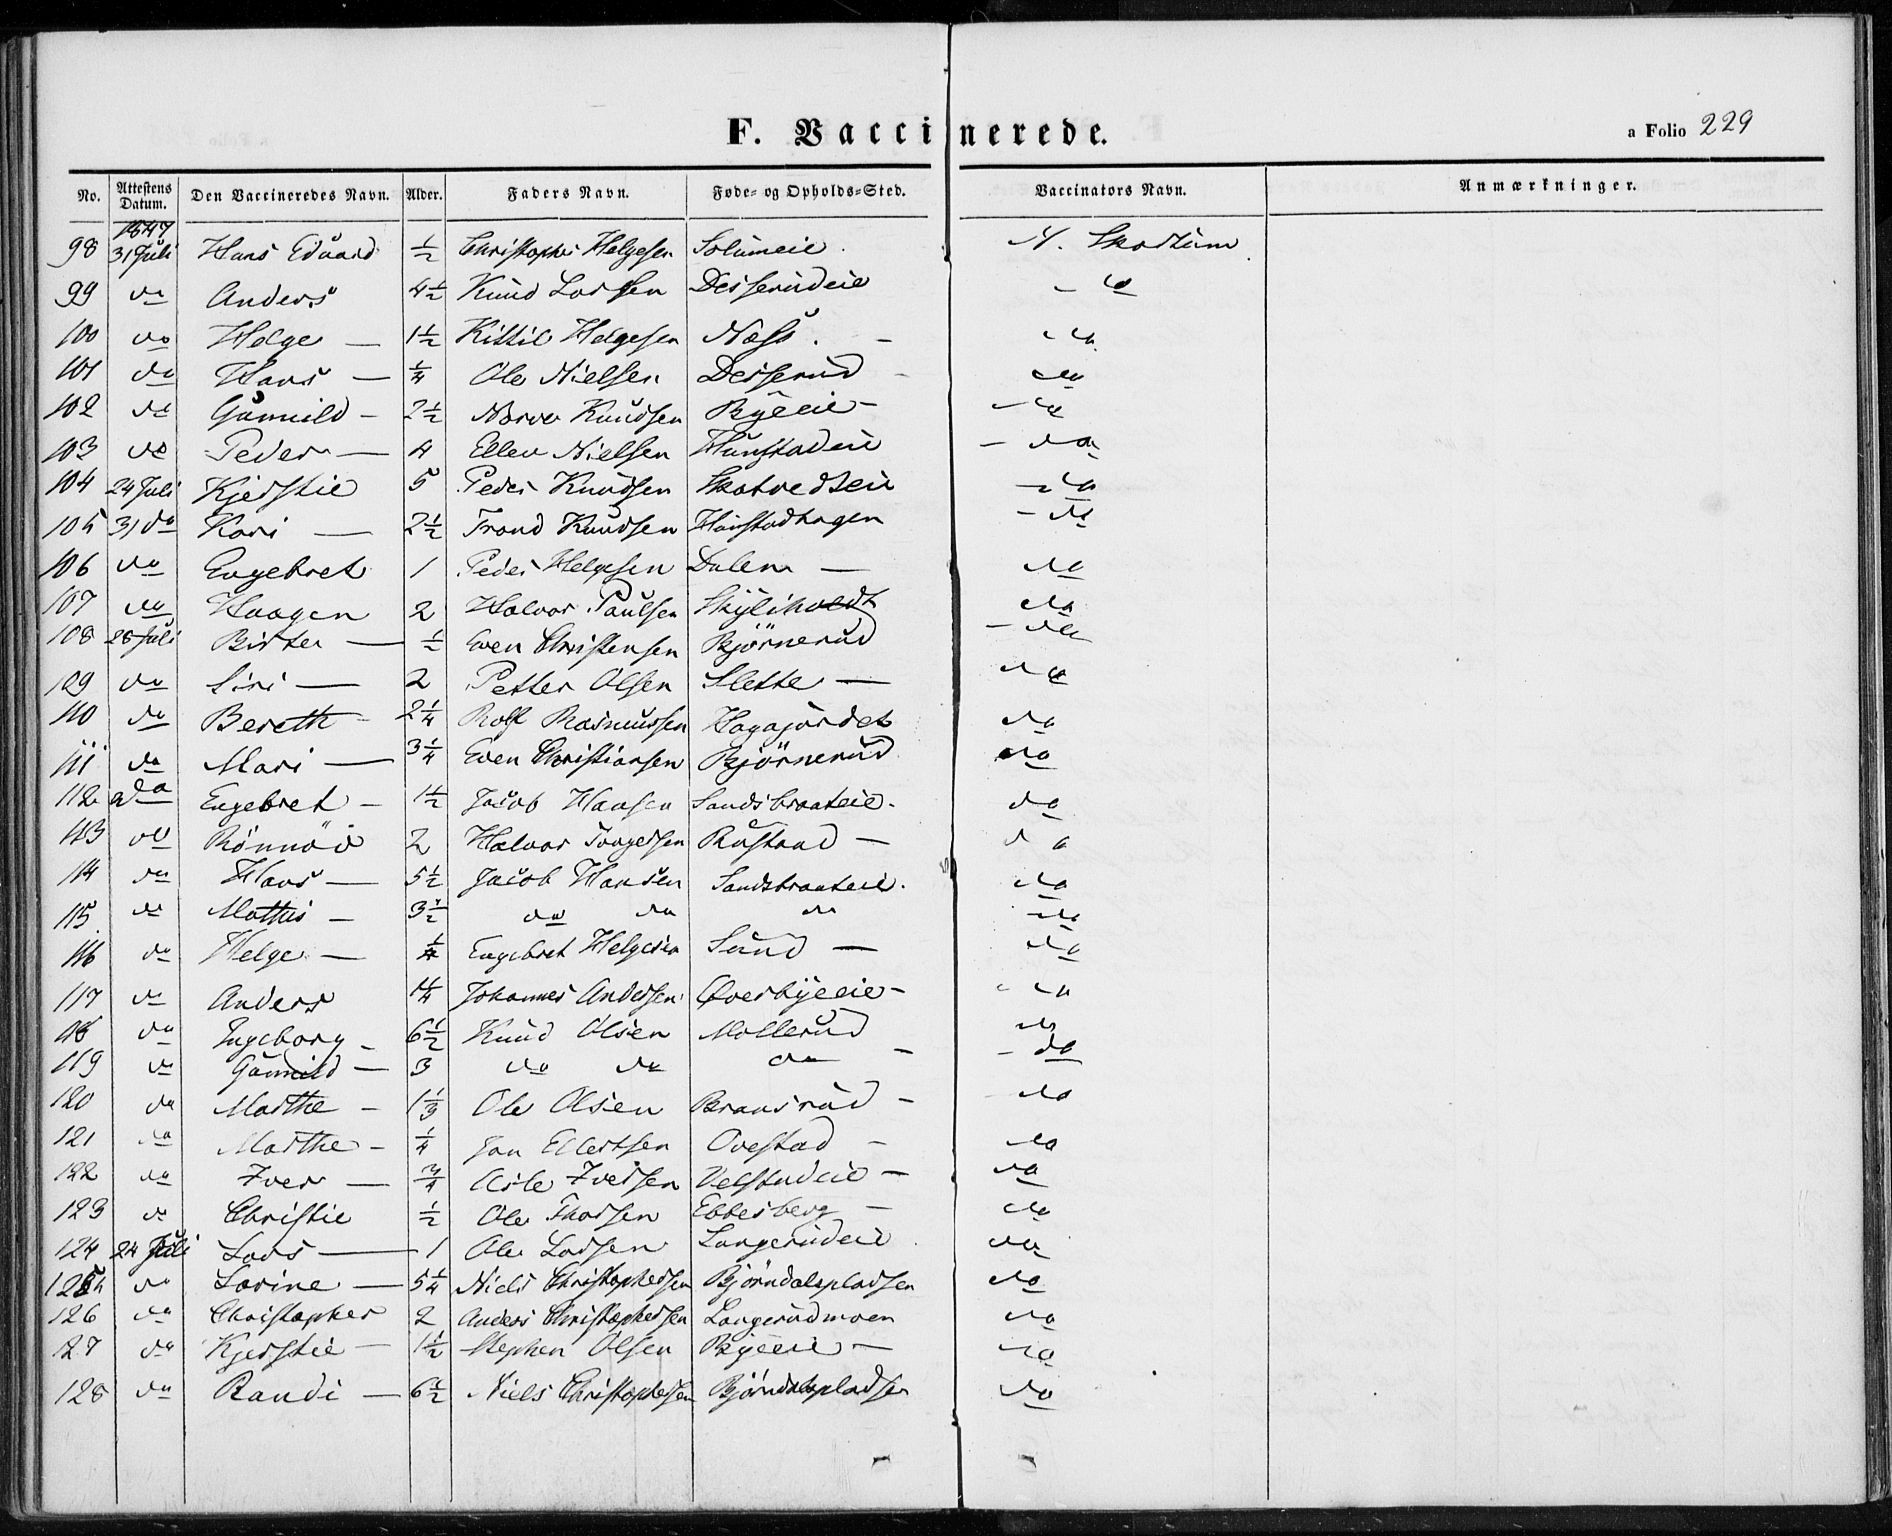 F. Vaccinerede.
a Folio 229
No. Attestens Datum. Den Vaccineredes Navn. Alder. Faders Navn. Føde- og Opholds-Sted. Vaccinators Navn. Anmærkninger.
1847
98 31 Juli Hans Eduard ½ Christopher Helgesen Solumeie N. Skodtum
99 do Anders 4½ Knud Larsen Desserudeie - do
100 do Helge — 1½ Kittil Helgesen Næss. - do
101 do Hans — ¼ Ole Nielsen Desserud - do
102 do Gunnild - 2½ Narve Knudsen Byeeie - - do
103 do Peder — 4 Ellev Nielsen Hunstadeie - do
104 24 Juli Kjerstie 5 Peder Knudsen Skatvedteie - do
105 31 do Kari — 2½ Trond Knudsen Hunstadhagen - do
106 do Engebret 1 Peder Helgesen Dalen — do
107 do Haagen 2 Halvor Paulsen do
108 28 Juli Birte — ½ Even Christensen Bjørnerud - do
109 do Siri — 2 Petter Olsen Slette — do
110 do Bereth - 2¼ Rolf Rasmussen Hagajordet do
111 do Mari — 3¼ Even Christiansen Bjørnerud do
112 do Engebret - 1½ Jacob Hansen Sandsbraateie. do
113 do Rönnöi 2 Halvor Torgersen Rustand — do
114 do Hans — 5½ Jacob Hansen Sandsbraateie. do
115 do Mathis - 3½ do do do do
116 do Helge — ¼ Engebret Helgesen Sund — do
117 do Anders 1¼ Johannes Andersen Øverbyeeie - - do
118 do Ingeborg - 6½ Knud Olsen Mollerud do
119 do Gunnild — 3 do do do - - do
120 do Marthe - 1⅓ Ole Olsen Bransrud - - do
121 do Marthe - ¼ Jan Ellertsen Ovestad - do
122 do Iver — ¾ Asle Iversen Velstadeie - do
123 do Christie ½ Ole Thorsen Ebbesberg - do
124 24 Juli Lars — 1 Ole Larsen Langerudeie do
125 do Lovine — 5¼ Niels Christophersen Bjørndalspladsen do
126 do Christopher 2 Anders Christophersen Langerudmoen do
127 do Kjerstie - 1½ Stephen Olsen Byeeie — do
128 do Randi — 6½ Niels Christophersen Bjørndalspladsen do